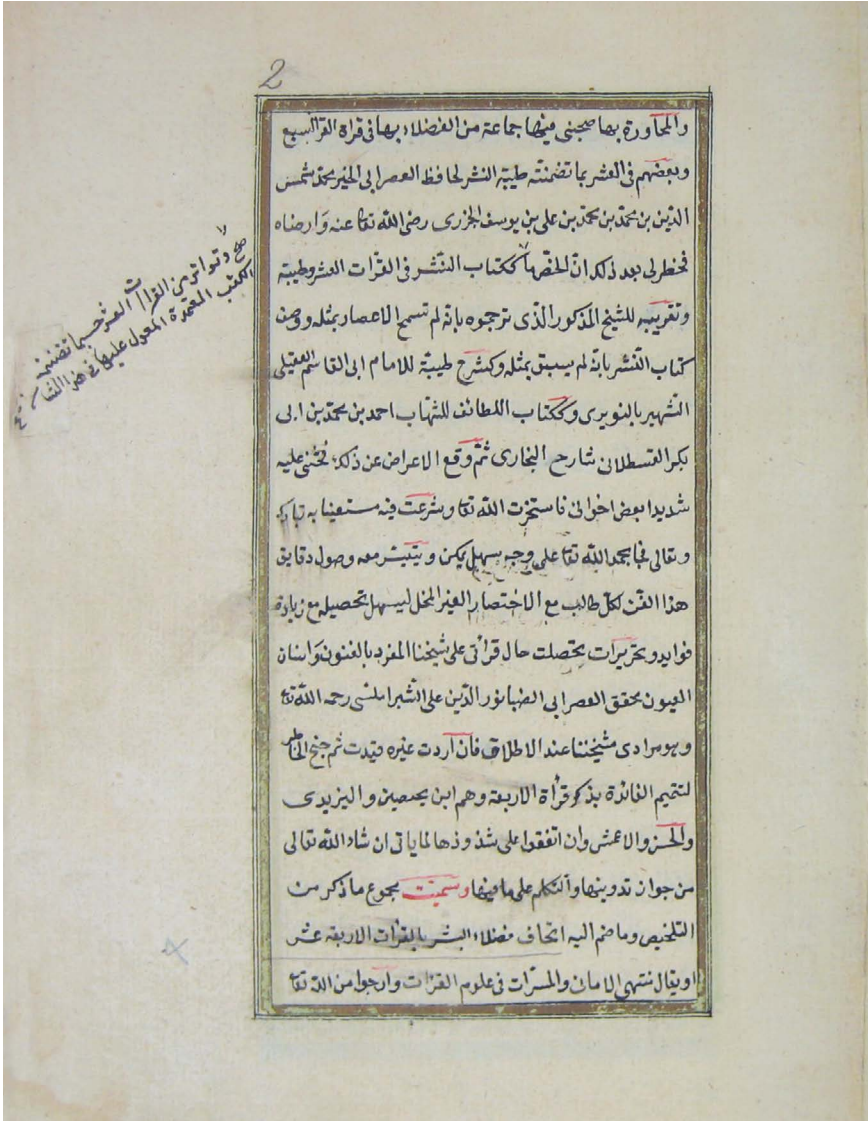 2
والمجاورة بها صحبنى فيها جماعة من الفضلاء بها فى قراة القرا السبع
وبعضهم فى العشر بما تضمنته طيبة النشر لحافظ العصر ابى الخير محمد شمس
الدين بن محمد بن محمد بن على بن يوسف الجزرى رضى الله تعا عنه وارضاه
فخطر لى بعد ذلك ان الخص ما ككتاب النشر فى القرات العشر وطيبته
وتقريبه للشيخ المذكور الذى ترجموه بانه لم تسمح الاعصار بمثله ووصف
كتاب النشر بانه لم يسبق بمثله وكشرح طيبة للامام ابى القاسم العقيلى
الشهير بالنويرى وككتاب اللطائف للشهاب احمد بن محمد بن ابى
بكر القسطلانى شارح البخارى ثم وقع الاعراض عن ذلك فحثنى عليه
شديدا بعض اخوانى فاستخرت الله تعا وشرعت فيه مستعينا به تبارك
وتعالى فجا بحمد الله تعا على وجه سهل يمكن ويتيسر معه وصول دقايق
هذا الفن لكل طالب مع الاختصار الغير المخل ليسهل تحصيله مع زيادة
فوايد وتحريرات تحصلت حال قرأتى على شيخنا المفرد بالفنون وانسان
العيون محقق العصر ابى الضيا نور الدين على الشبراملسى رحمه الله تعا
وهو مرادى بشيخنا عند الاطلاق فان اردت غيره قيدت ثم جنح الخاطر
لتتميم الفائدة بذكر قرأة الاربعة وهم ابن محيصين واليزيدى
والحسن والاعمش وان اتفقوا على شذوذها لما ياتى ان شاء الله تعالى
من جواز تدوينها والتكلم على ما فيها وسميت مجموع ما ذكر من
التلخيص وما ضم اليه اتحاف فضلاء البشر بالقرات الاربعة عشر
او يقال منتهى الامانى والمسرات فى علوم القرات وارجوا من الله تعا
صح وتواتر من القراات العشر حسبما تضمنته
الكتب المعتمدة المعول عليها فى هذا الشان